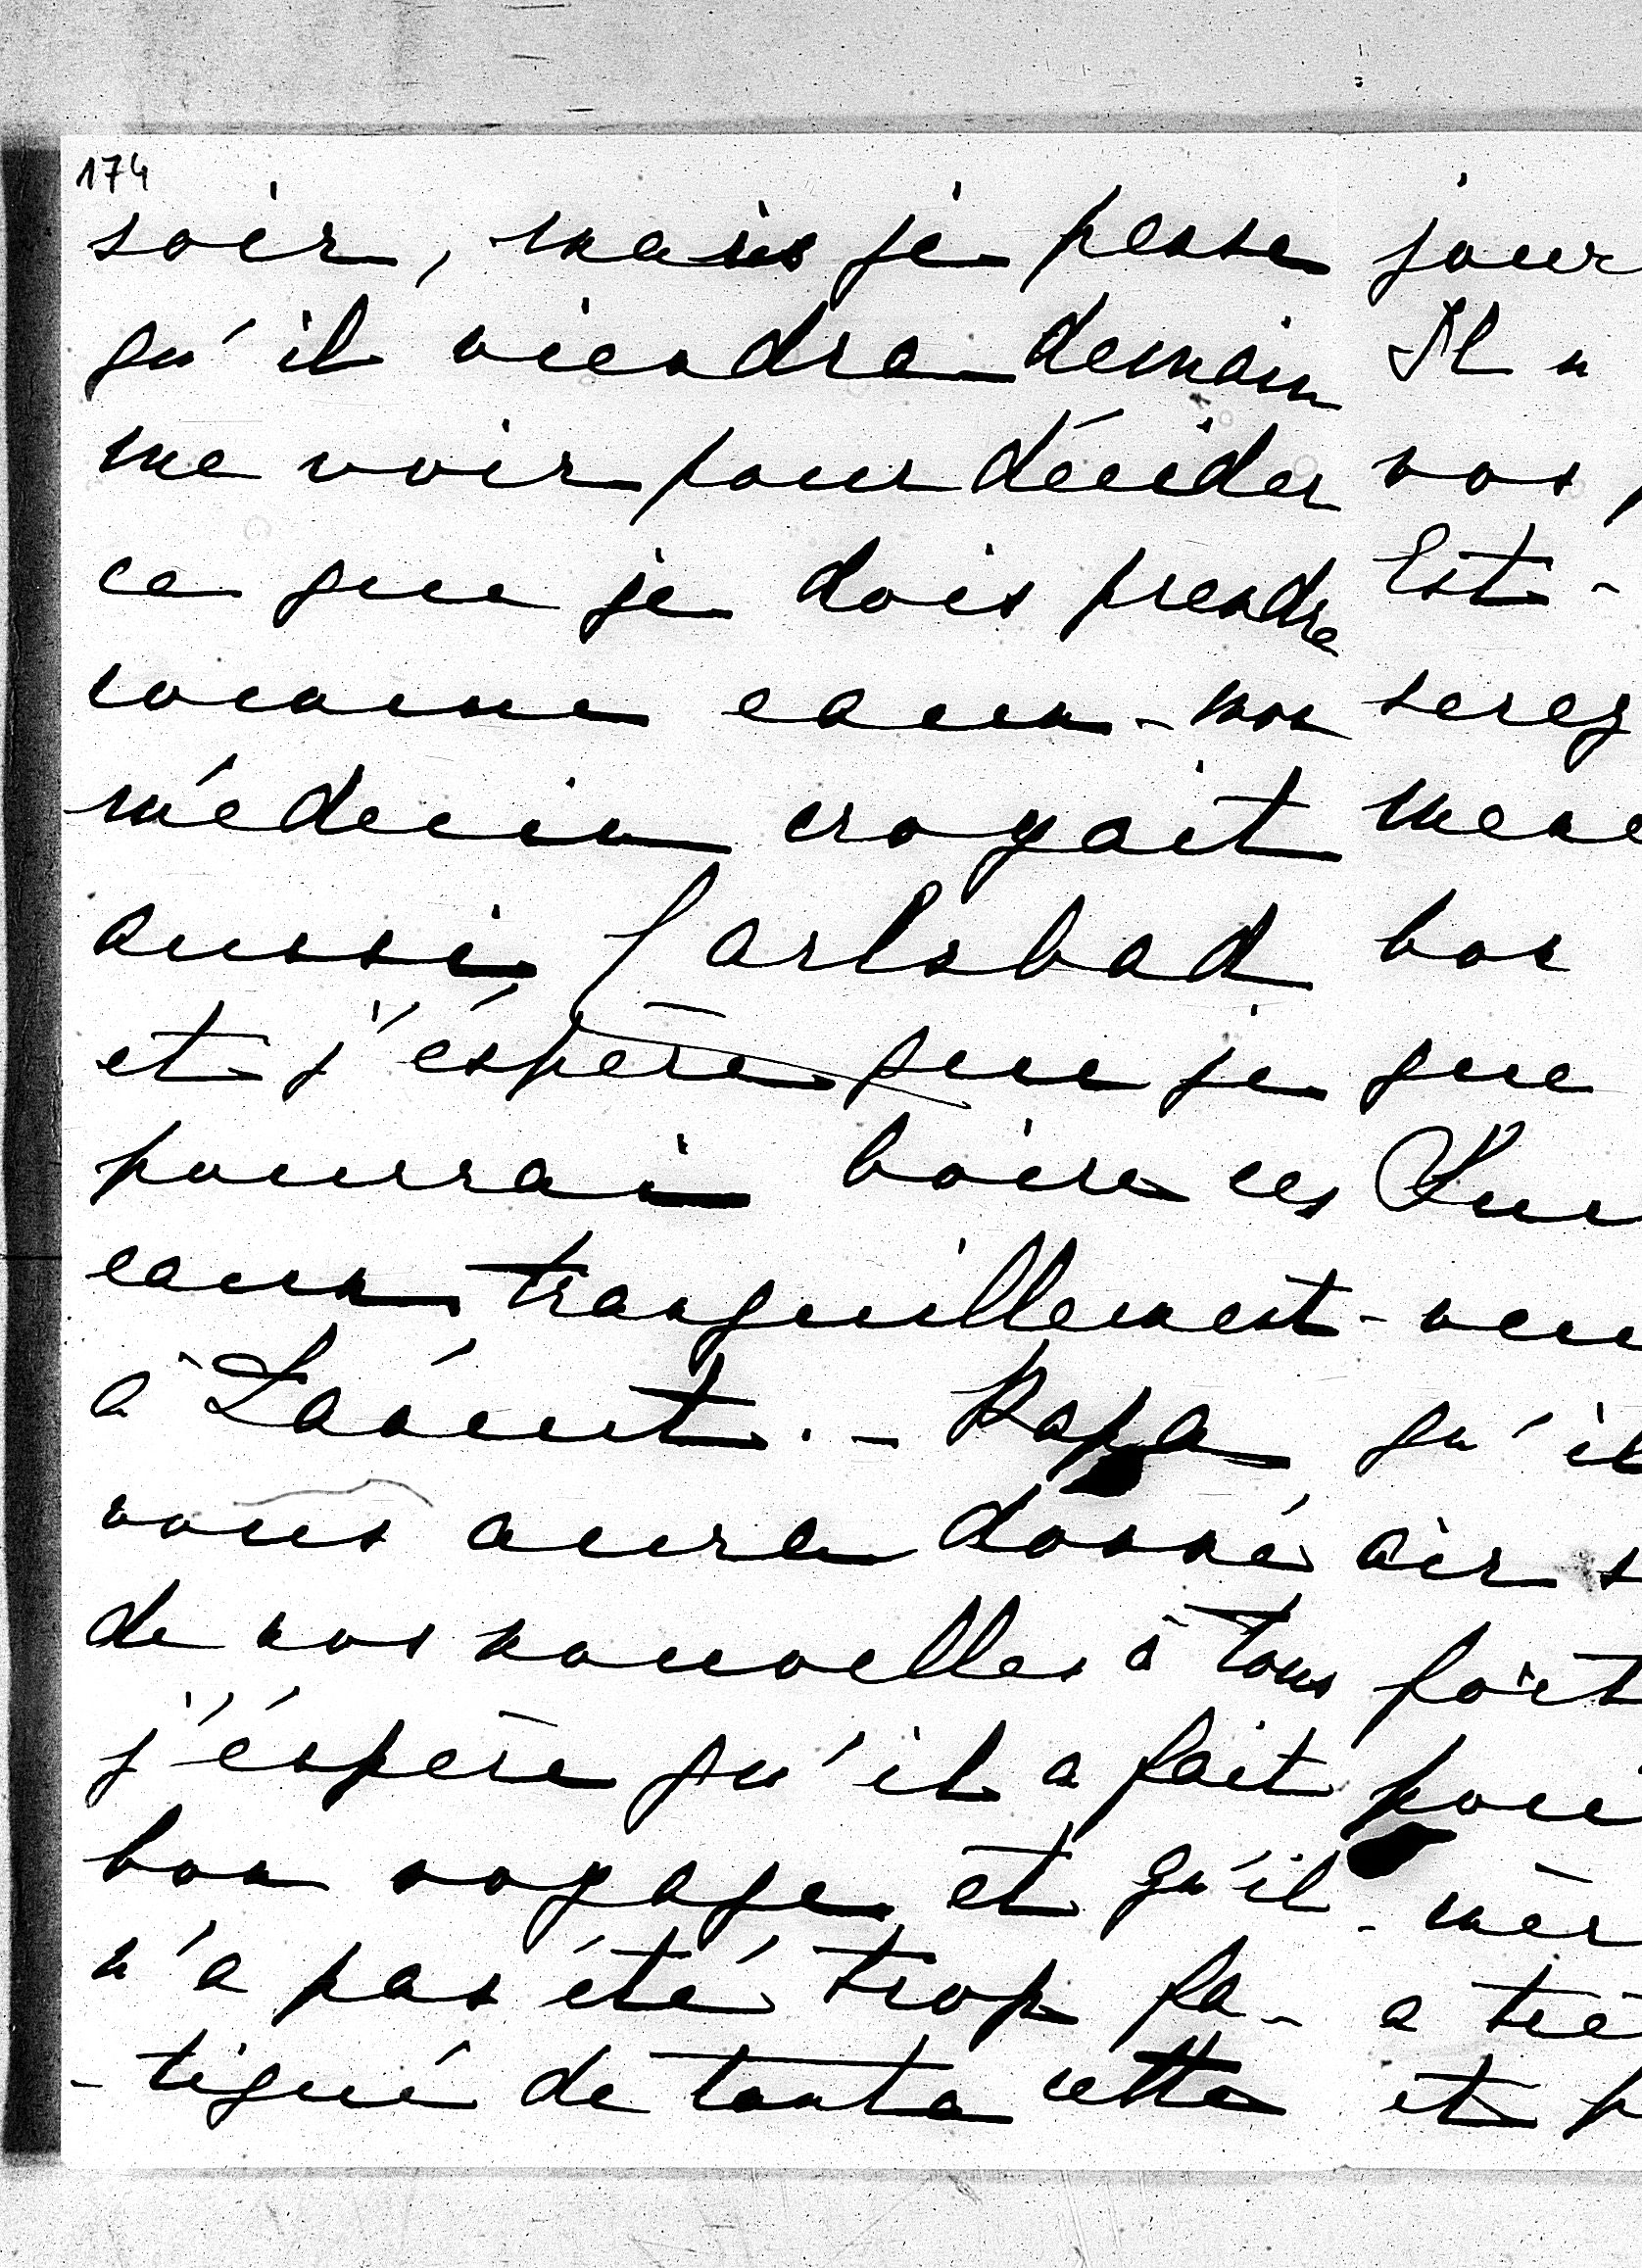 174
soir, mais je pense
qu'il viendra demain
me voir pour décider
ce que je dois prendre
comme eaux - mon
médecin croyait
aussi Carlsbad
et j'éspère que je
pourrai boire ces
eaux tranquillement
à Laánut. - Papa
vous aura donné
de nos nouvelles à tous
j'éspère qu'il a fait
bon voyage et qu'il
n'a pas été trop fa-
-tigué de toute cette
jour
Il n
vos
Est-
serez
bon
que
qu'il
air s
fort
pour
mèr
a
et p